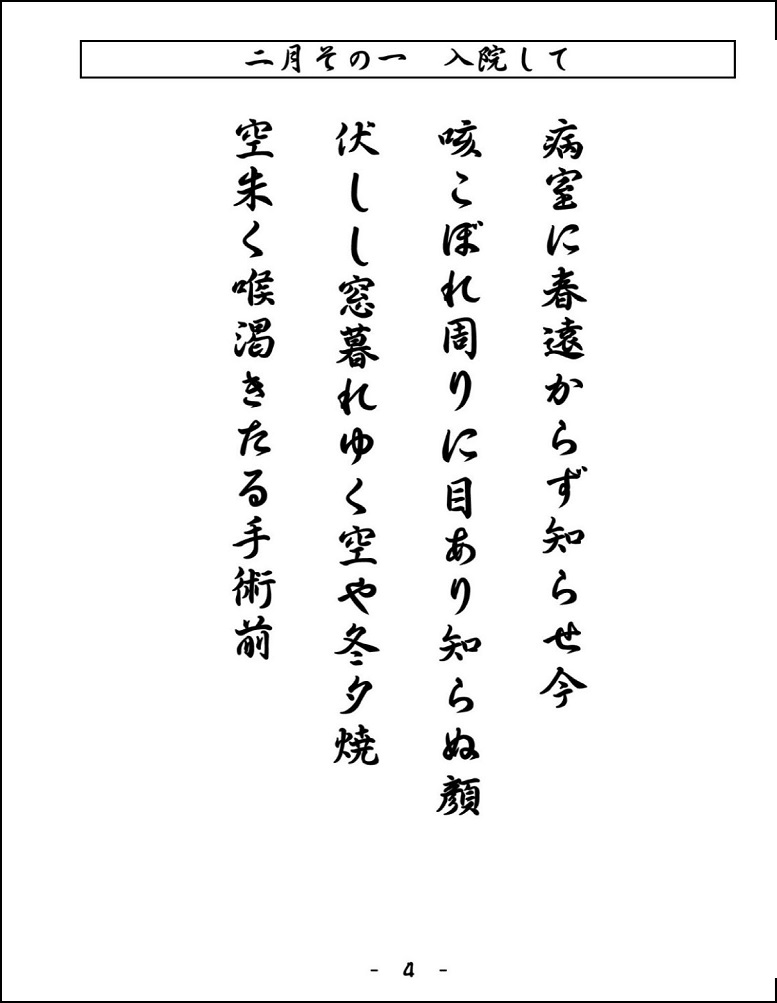 二月その一　入院して
病室に春遠からず知らせ今
咳こぼれ周りに目あり知らぬ顔
伏しし窓暮れゆく空や冬夕焼
空朱く喉渇きたる手術前
- 4 -